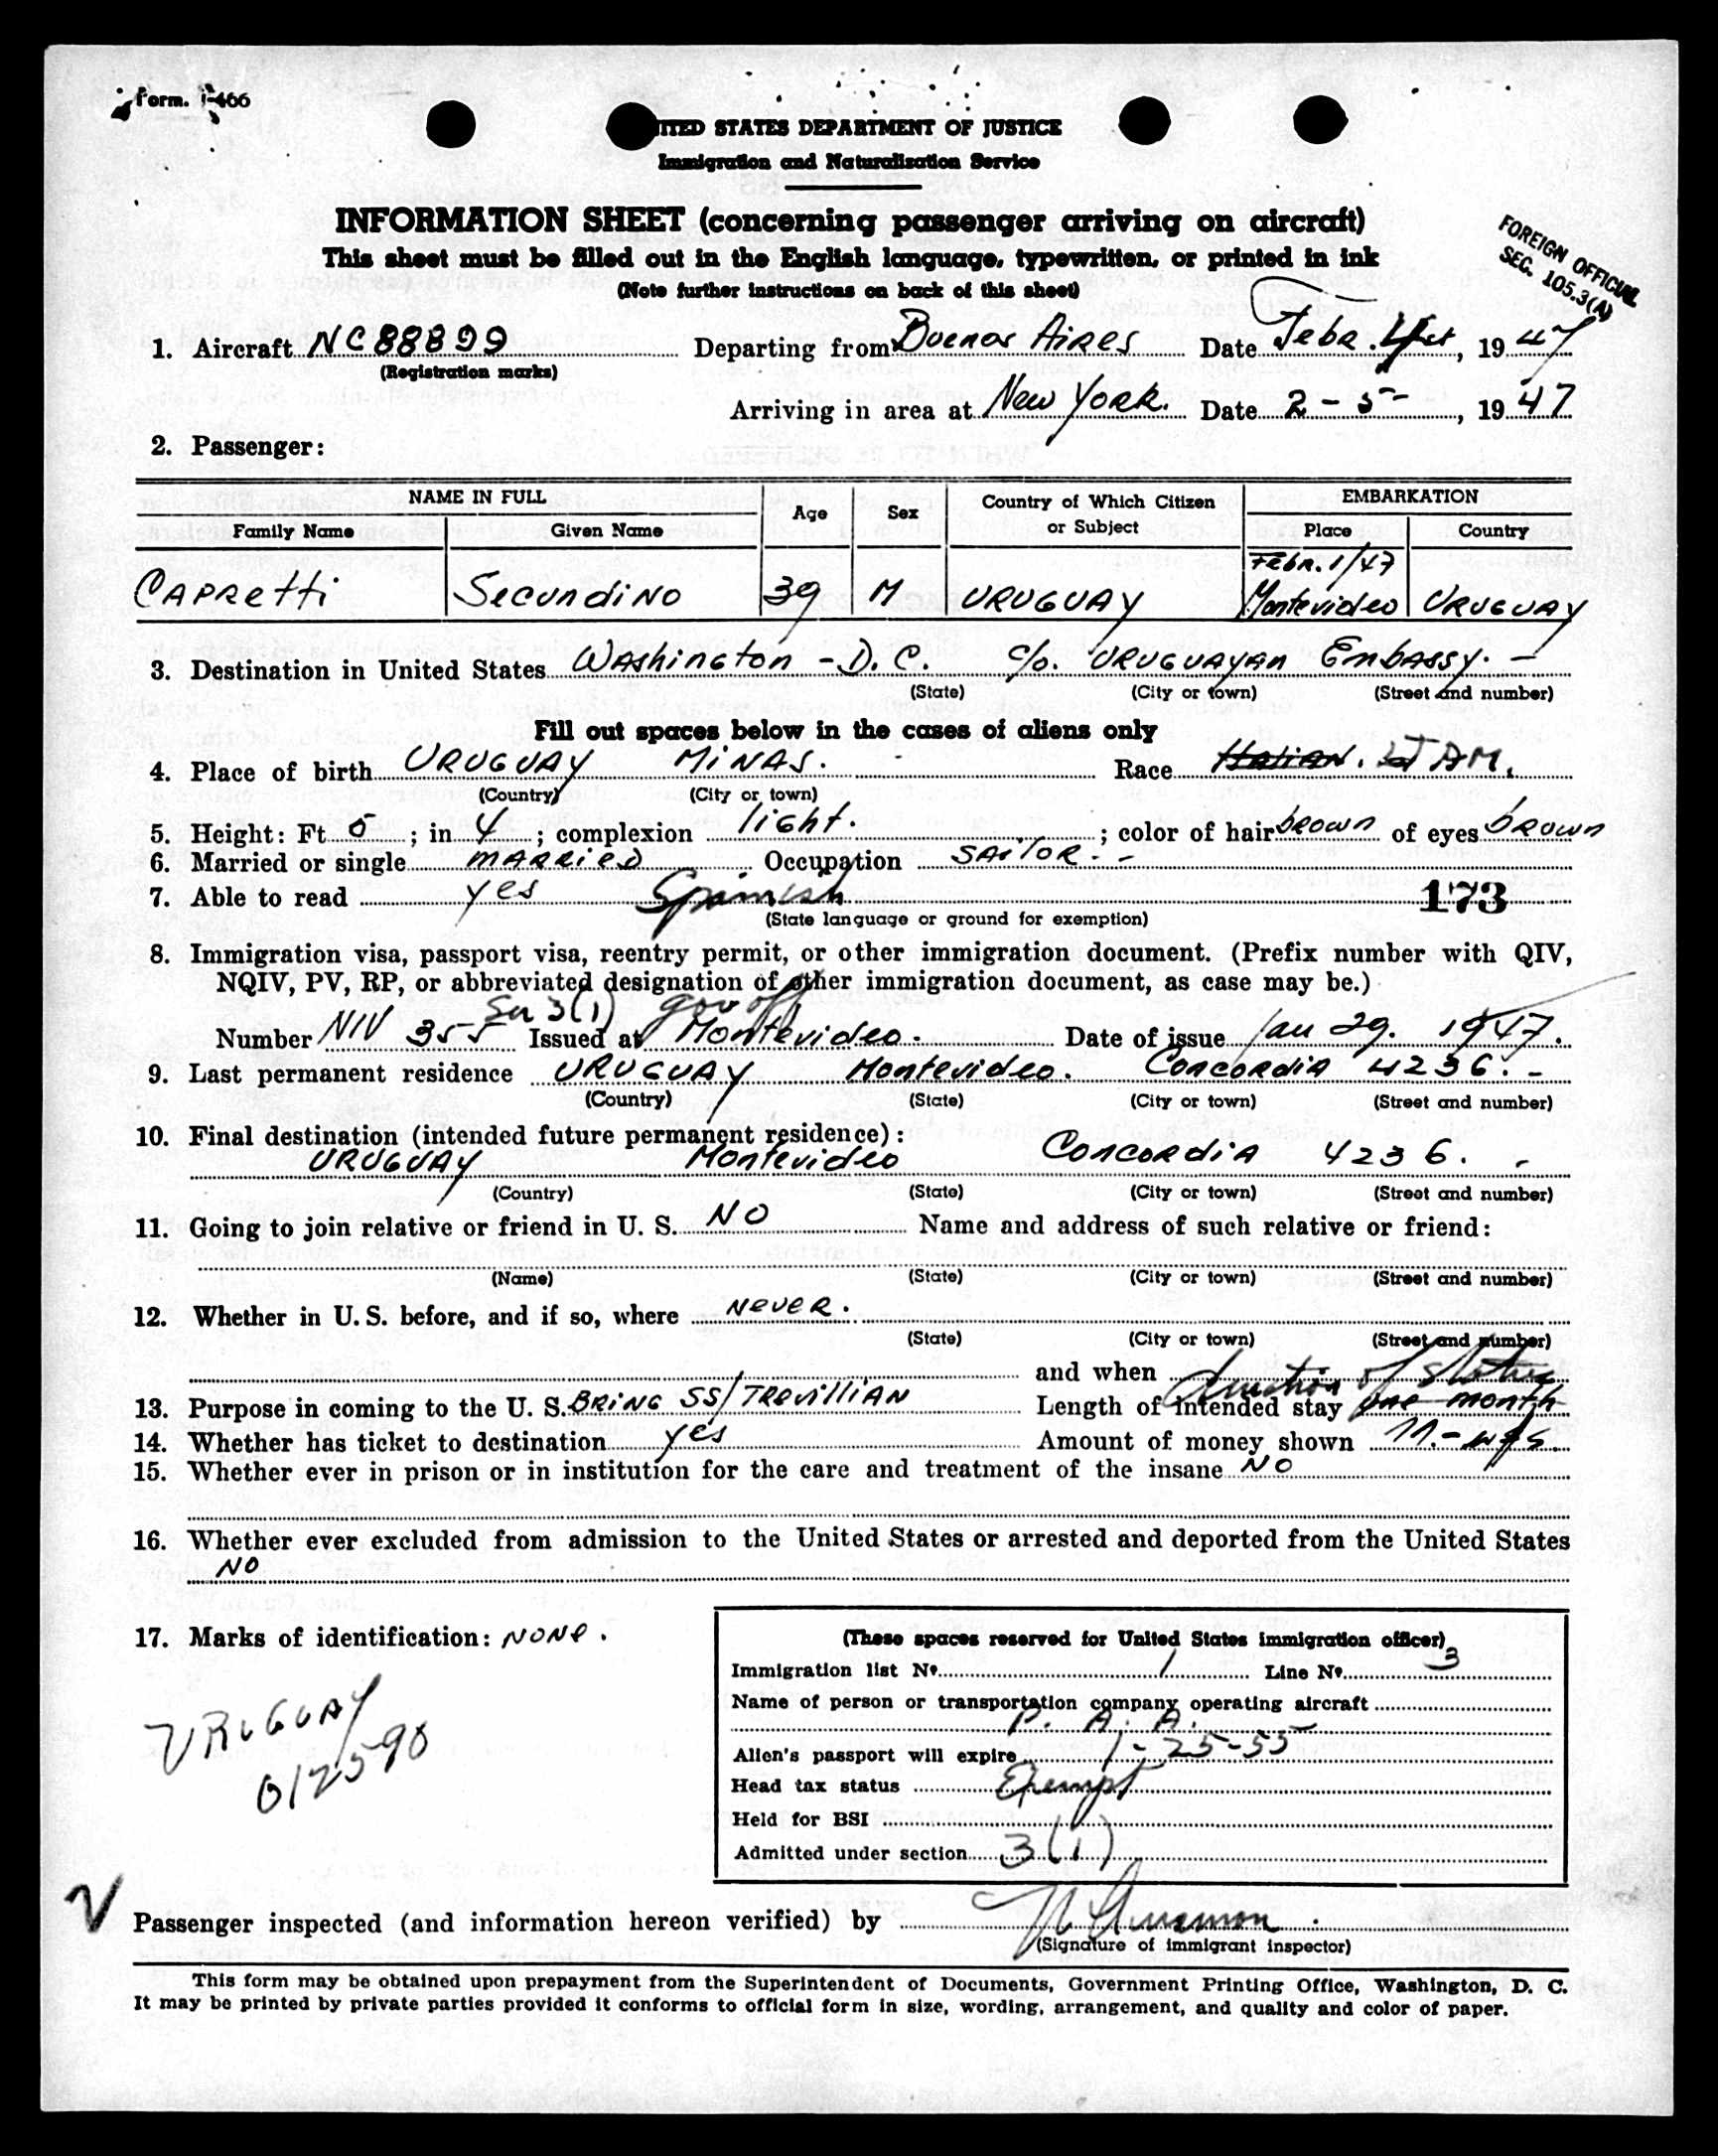 Form. I-466
UNITED STATES DEPARTMENT OF JUSTICE
Immigration and Naturalization Service
INFORMATION SHEET (concerning passenger arriving on aircraft)
This sheet must be filled out in the English language, typewritten, or printed in ink
(Note further instructions on back of this sheet)
FOREIGN OFFICIAL
SEC. 105.3(A)
1. Aircraft NC88899 Departing from Buenos Aires Date Febr. , 1947
(Registration marks)
Arriving in area at New York. Date 2-5-, 1947
2. Passenger:
NAME IN FULL Age Sex Country of Which Citizen or Subject EMBARKATION
Family Name Given Name Place Country
Febr. 1/47
CAPRetti SecundiNO 39 M URUGUAY Montevideo URUGUAY
3. Destination in United States WAshington - D.C. c/o. URUGUAYAN EmbASSY. -
(State) (City or town) (Street and number)
Fill out spaces below in the cases of aliens only
4. Place of birth URUGUAY MiNAS. Race Italian. AM.
(Country) (City or town)
5. Height: Ft 5; in 4; complexion light.; color of hair brown of eyes brown
6. Married or single MARRieD Occupation SAiloR. -
7. Able to read yes Spanish 173
(State language or ground for exemption)
8. Immigration visa, passport visa, reentry permit, or other immigration document. (Prefix number with QIV,
NQIV, PV, RP, or abbreviated designation of other immigration document, as case may be.)
3(1) gov off
Number NIV 355 Issued at Montevideo. Date of issue Jan 29. 1947.
9. Last permanent residence URUGUAY Montevideo. Concordia 4236. -
(Country) (State) (City or town) (Street and number)
10. Final destination (intended future permanent residence):
URUGUAY Montevideo Concordia 4236. -
(Country) (State) (City or town) (Street and number)
11. Going to join relative or friend in U. S. NO Name and address of such relative or friend:
(Name) (State) (City or town) (Street and number)
12. Whether in U. S. before, and if so, where NeveR.
(State) (City or town) (Street and number)
and when
duration of status
13. Purpose in coming to the U. S. BRiNG SS/TReVilliAN Length of intended stay one month
14. Whether has ticket to destination yes Amount of money shown 11.-
15. Whether ever in prison or in institution for the care and treatment of the insane NO
16. Whether ever excluded from admission to the United States or arrested and deported from the United States
NO
17. Marks of identification: NONe.
URUGUAY
012590
(These spaces reserved for United States immigration officer)
Immigration list No. 1 Line No. 3
Name of person or transportation company operating aircraft
P. A. A.
Alien's passport will expire 1-25-55
Head tax status Exempt
Held for BSI
Admitted under section 3(1)
Passenger inspected (and information hereon verified) by
(Signature of immigrant inspector)
This form may be obtained upon prepayment from the Superintendent of Documents, Government Printing Office, Washington, D. C.
It may be printed by private parties provided it conforms to official form in size, wording, arrangement, and quality and color of paper.